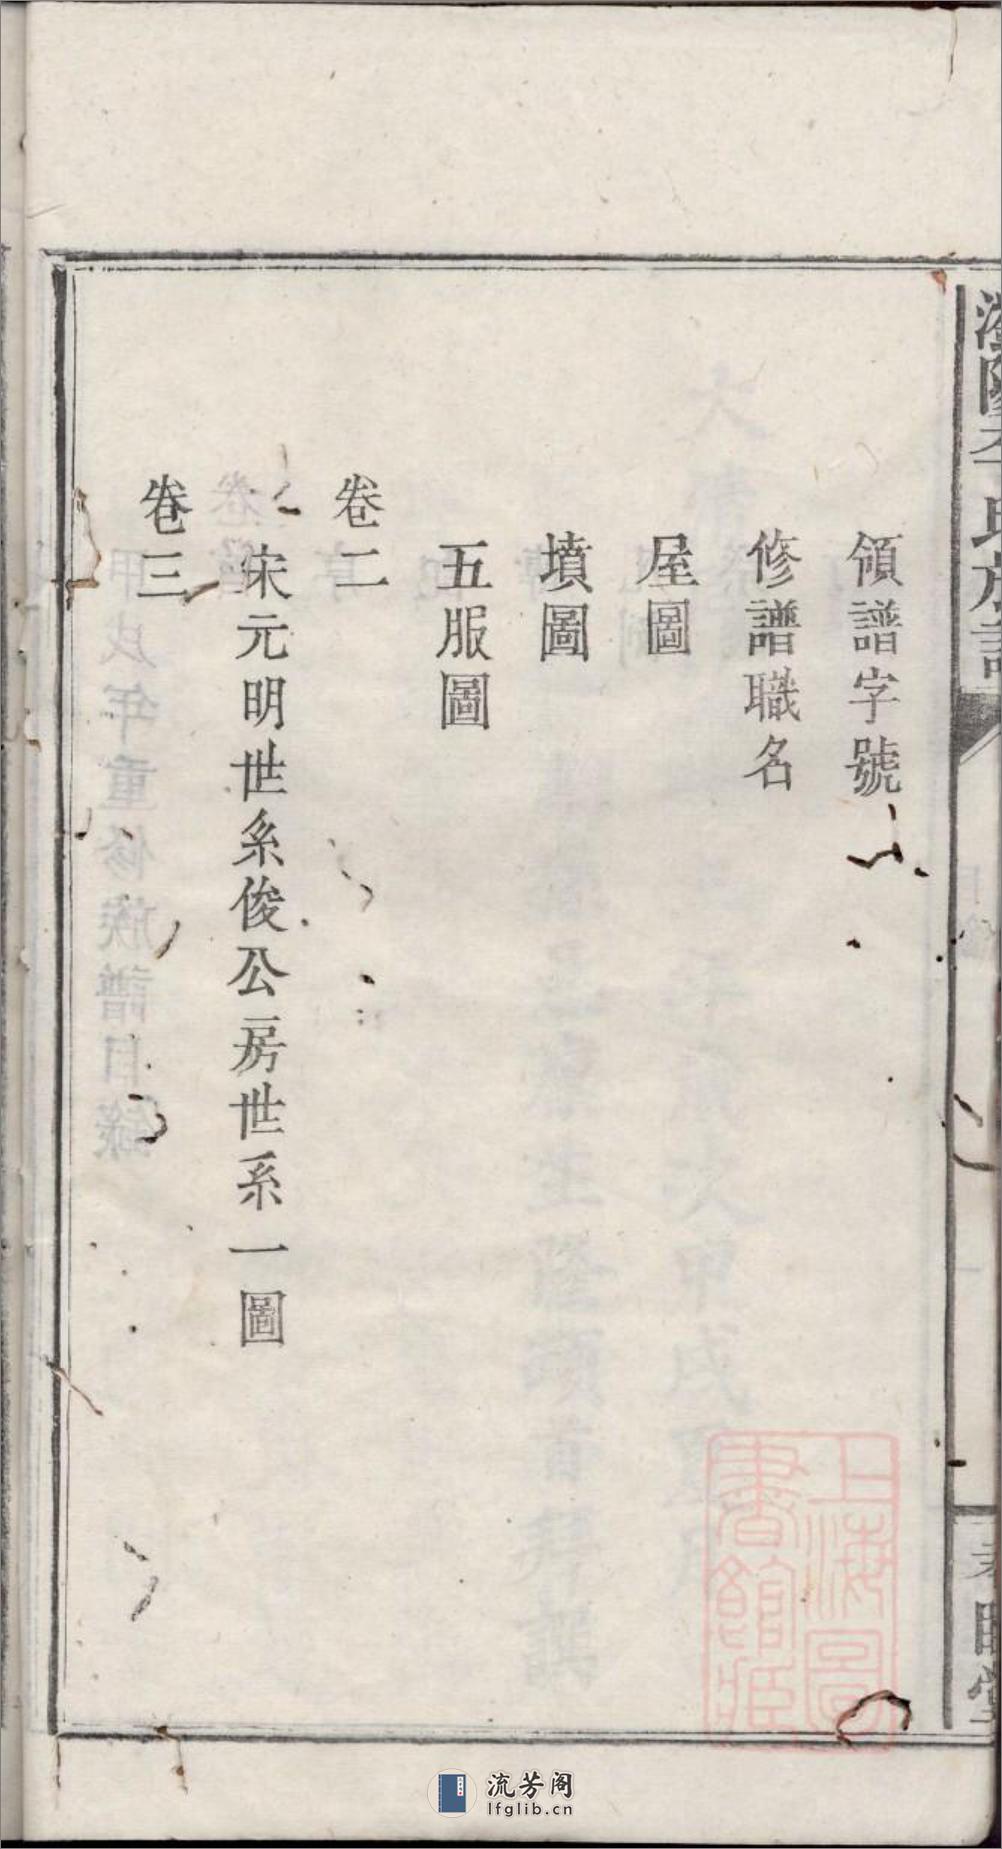 領譜字號
修譜職名
屋圖
墳圖
五服圖
卷二
宋元明世系俊公房世系一圖
卷三
上海圖書館藏
流芳阁
lfglib.cn